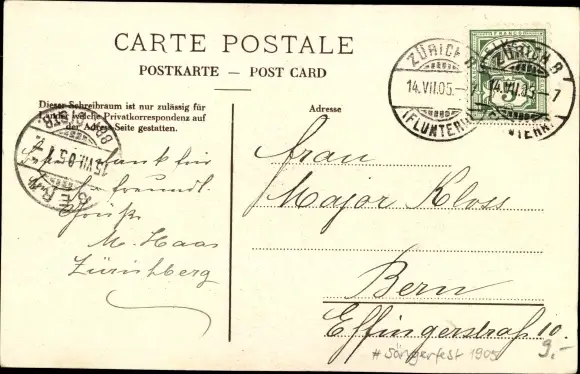 CARTE POSTALE
POSTKARTE — POST CARD
Dieser Schreibraum ist nur zulässig für
welche Privatkorrespondenz auf
der Adress-Seite gestatten.
Adresse
FRANCO
5
ZÜRICH
14.VII.05.-7
(FLUNTERN)
ZÜRICH
14.VII.05.-7
(FLUNTERN)
15.VII.05.
Dank für
freundl.
Grüße
M. Haas
Zürichberg
Frau
Major Kloss
Bern
Effingerstraß 10.
9.-
# Sängerfest 1905